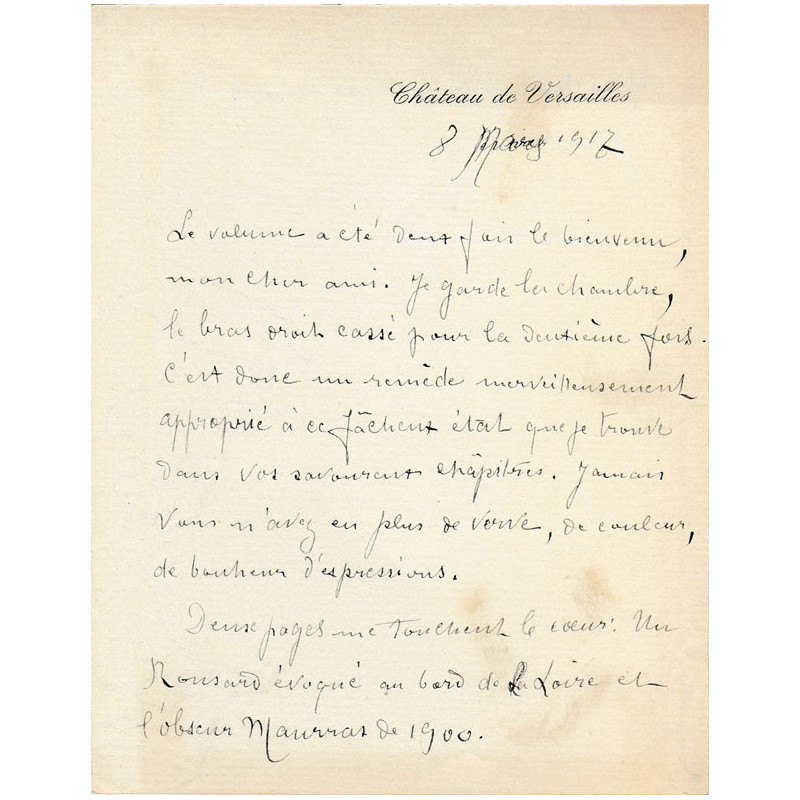 Château de Versailles
8 Mars 1917
Le volume a été deux fois le bienvenu,
mon cher ami. Je garde la chambre,
le bras droit cassé pour la deuxième fois.
C'est donc un remède merveilleusement
approprié à ce fâcheux état que je trouve
dans vos savoureux châpitres. Jamais
vous n'avez eu plus de verve, de couleur,
de bonheur d'expressions.
Deux pages me touchent le cœur : Un
Ronsard évoqué au bord de la Loire et
l'obscur Maurras de 1900.